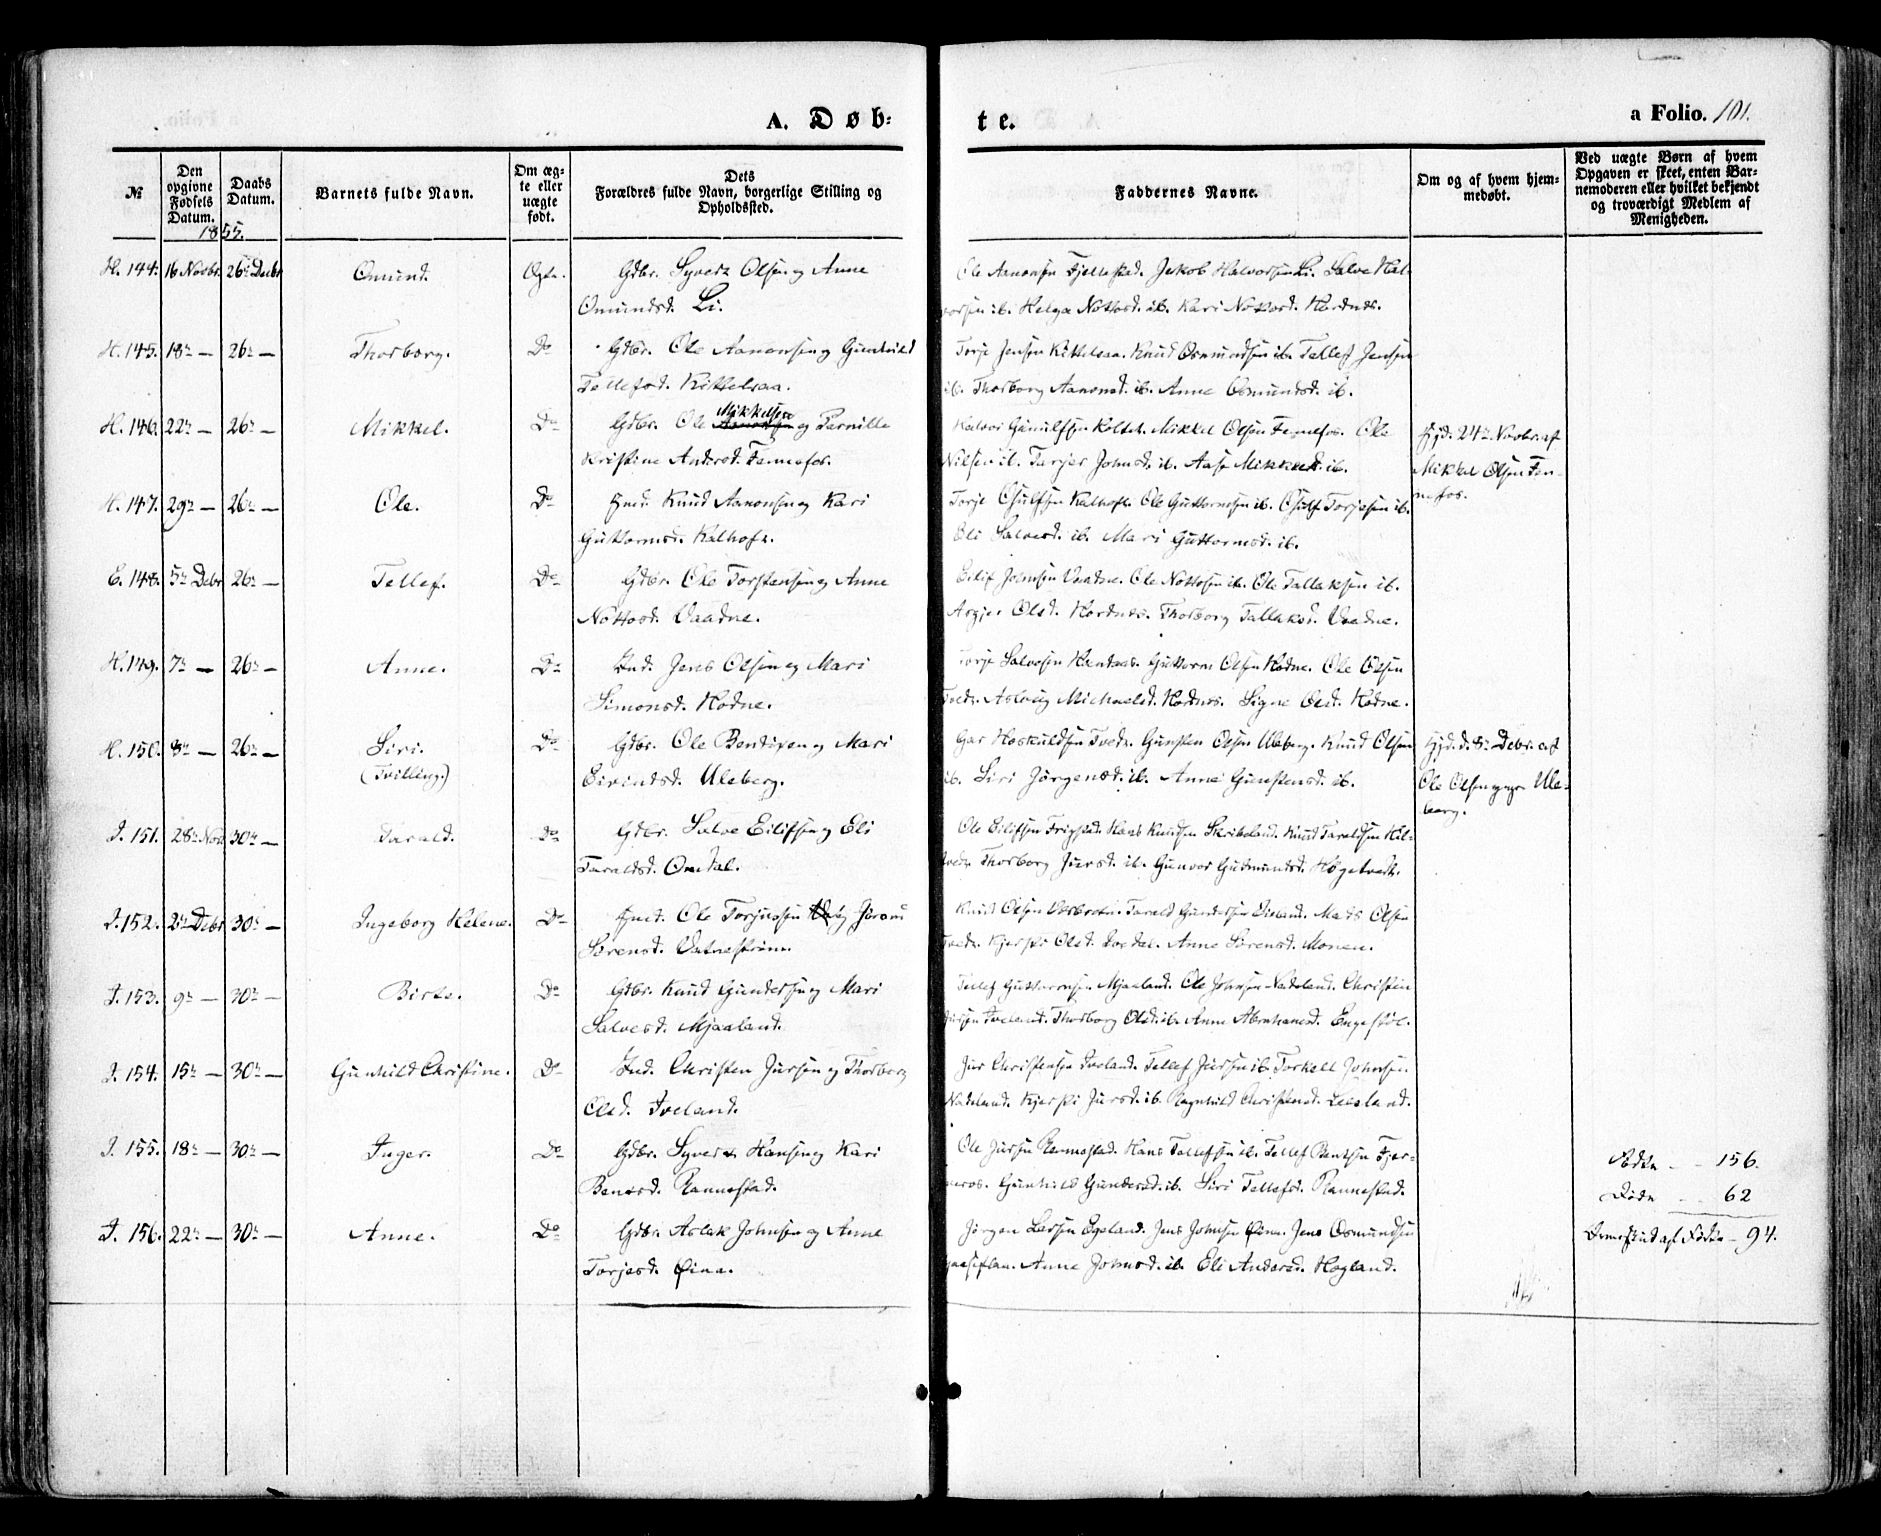 A. Døb-
te.
a Folio. 101.
№
Den opgivne Fødsels Datum.
Daabs Datum.
Barnets fulde Navn.
Om ægte eller uægte født.
Dets Forældres fulde Navn, borgerlige Stilling og Opholdssted.
Faddernes Navne.
Om og af hvem hjemmedøbt.
Ved uægte Børn af hvem Opgaven er skeet, enten Barnemoderen eller hvilket bekjendt og troværdigt Medlem af Menigheden.
1855.
H. 144. 16 Novbr. 26 Decbr Omund. Ægte. Gdbr. Syvert Olsen og Anne
Omundsd. Li.
Ole Aanonsen Fjellestad. Jakob Halvorsen Li. Salve Hal-
vorsen ib. Helga Nottosd. ib. Kari Nottosd. Hordnes.
H. 145. 18 — 26 — Thorborg. Do Gdbr. Ole Aanonsen og Gunhild
Tellefsd. Kittelsaa.
Torje Jensen Kittelsaa. Knud Osmundsen ib. Tellef Jensen
ib. Thorborg Aanonsd. ib. Anne Osmundsd. ib.
H. 146. 22 — 26 — Mikkel. Do Gdbr. Ole Mikkelsen og Pernille
Kristine Andersd. Fennefos.
Mikkel Olsen Fennefos. Ole
Nilsen ib. Johnsd. ib. Aase Mikkelsd. ib.
Hjd. 24 Novbr. af
Mikkel Olsen Fen-
nefos.
H. 147. 29 — 26 — Ole. Do Knud Aanonsen og Kari
Guttormsd. Kalhoft.
Torje Osulfsen Kalhoft. Ole Guttormsen ib. Osulf Torjesen ib.
Eli Salvesd. ib. Mari Guttormsd. ib.
E. 148. 5 Debr 26 — Tellef. Do Gdbr. Ole Torstensen og Anne
Nottosd. Vaadne.
Eilif Johnsen Vaadne. Ole Nottosen ib. Ole Tallaksen ib.
Olsd. Hordnes. Thorborg Tallaksd. Vaadne.
H. 149. 7 — 26 — Anne. Do Ind. Jens Olsen og Mari
Simonsd. Hodne.
Torje Salvesen Guttorm Olsen Hodne. Ole Olsen
Tvedt. Aslaug Michaelsd. Hordnes. Signe Olsd. Hodne.
H. 150. 8 — 26 — Siri. Do Gdbr. Ole Bentsen og Mari
(Tvilling.)
Eivindsd. Uleberg.
Hoskuldsen Tvedt. Gunsten Olsen Uleberg. Knud Olsen
ib. Siri Jørgensd. ib. Anne Gunstensd. ib.
Hjd. d. 8 Debr. af
Ole Olsen Ule-
berg.
I. 151. 28 Nov. 30 — Tarald. Do Gdbr. Salve Eilifsen og Eli
Taraldsd. Omdal.
Ole Eilifsen Frigstad. Hans Knudsen Skribeland. Knud Taraldsen
Thorborg Jursd. ib. Gunvor Gudmundsd. Høgetvedt.
I. 152. 2 Debr 30 — Ingeborg Helene. Do Ole Torjussen og Jørani
Sørensd. Vatnestrøm.
Knud Olsen Tarald Gundersen Mads Olsen
Tvedt. Kjersti Olsd. Anne Sørensd. Monen.
I. 153. 9 — 30 — Birte. Do Gdbr. Knud Gundersen og Mari
Salvesd. Mjaaland.
Tellef Guttormsen Mjaaland. Ole Johnsen Nateland. Christen
Jursen Iveland. Thorborg Olsd. ib. Anne Abrahamsd. Engestøl.
I. 154. 15 — 30 — Gunhild Christine. Do Ind. Christen Jursen og Thorborg
Olsd. Iveland.
Jur Christensen Iveland. Tellef Jursen ib. Torkell Johnsen
Nateland. Kjersti Jursd. ib. Ragnhild Christensd.
I. 155. 18 — 30 — Inger. Do Gdbr. Syvert Hansen og Kari
Bentsd. Rannestad.
Ole Jursen Rannestad. Hans Tellefsen ib. Tellef Bentsen
Gunhild Gundersd. ib. Siri Tellefsd. Rannestad.
I. 156. 22 — 30 — Anne. Do Gdbr. Aslak Johnsen og Anne
Torjesd. Øine.
Jørgen Larsen Egeland. Jens Johnsen Øine. Jens Osmundsen
Gaaseflaa. Anne Johnsd. ib. Eli Andersd. Hogland.
Fødte 156.
Døde 62
Overskud af Fødte 94.